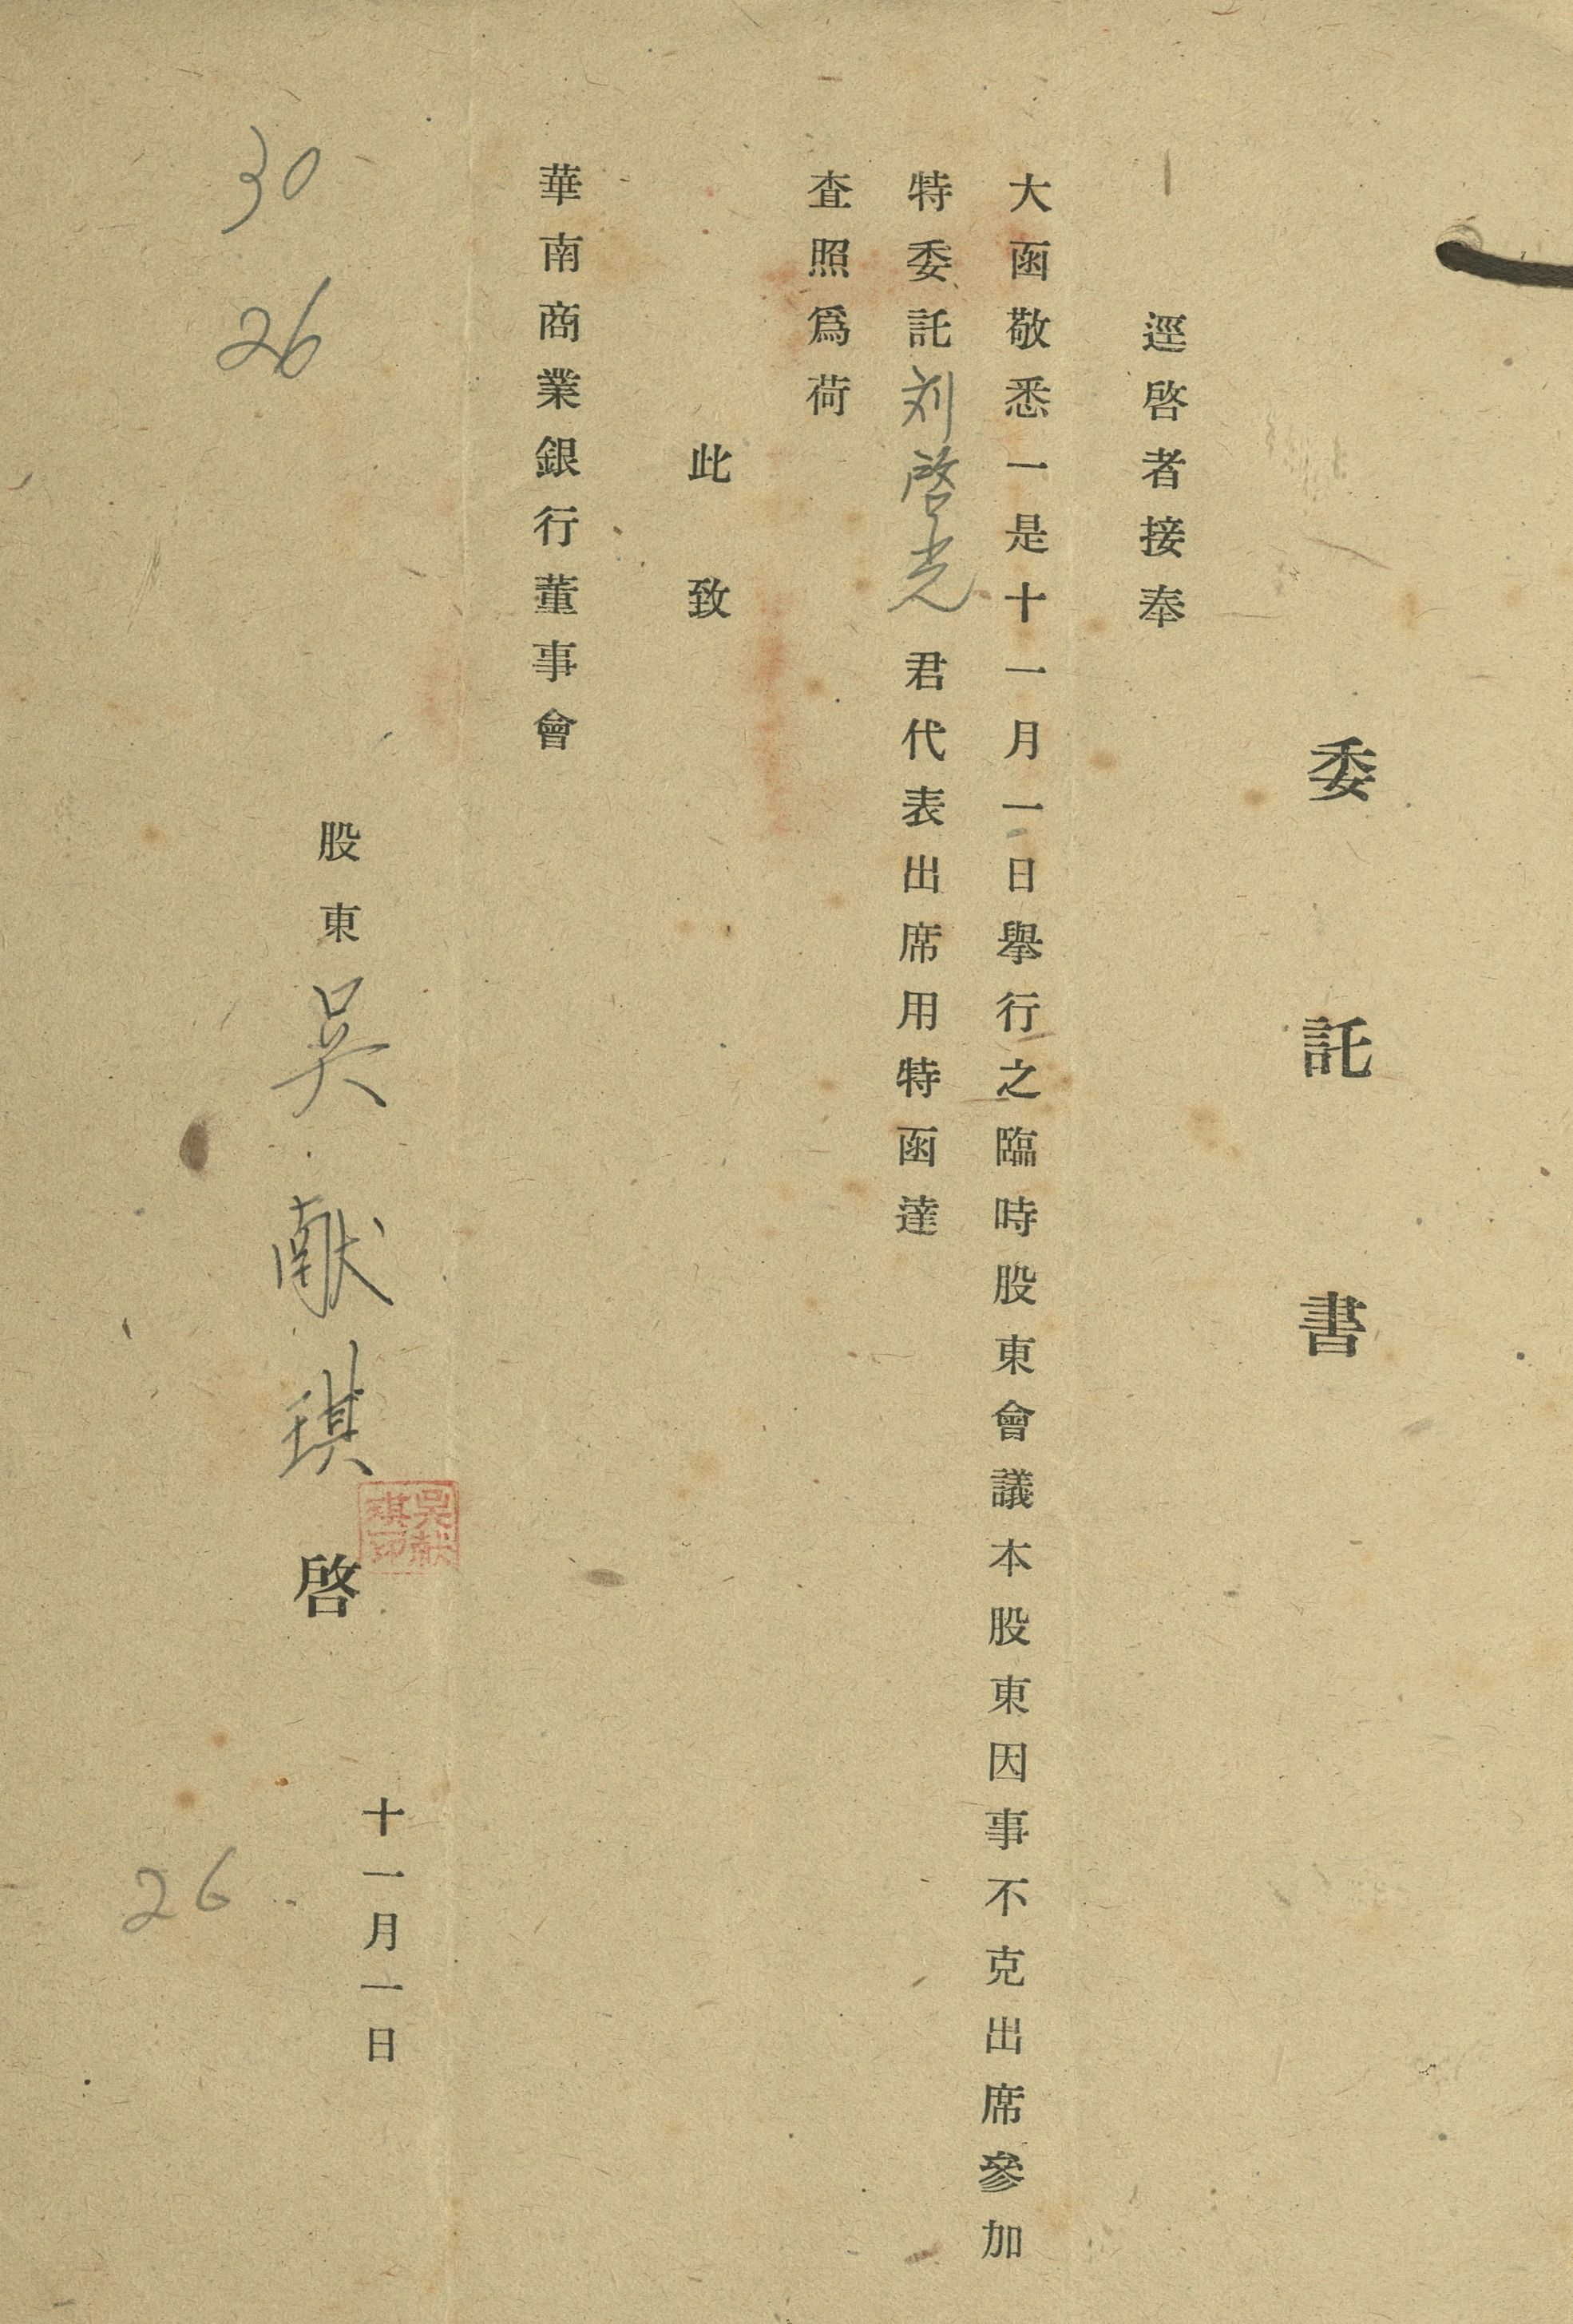 委託書
逕啓者接奉
大函敬悉一是十一月一日舉行之臨時股東會議本股東因事不克出席參加
特委託刘啓光君代表出席用特函達
查照爲荷
此致
華南商業銀行董事會
股東吳献琪啓
吳献琪印
十一月一日
30
26
26